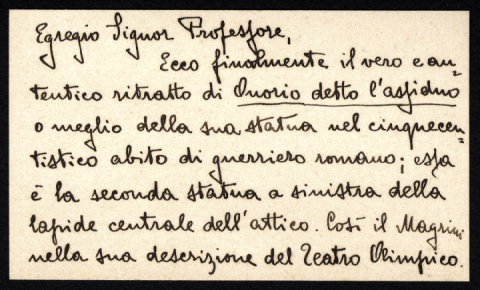 Egregio Signor Professore,
Ecco finalmente il vero e au-
tentico ritratto di Onorio detto l'assiduo
o meglio della sua statua nel cinquecen-
tistico abito di guerriero romano; essa
è la seconda statua a sinistra della
lapide centrale dell'attico. Così il Magrini
nella sua descrizione del Teatro Olimpico.